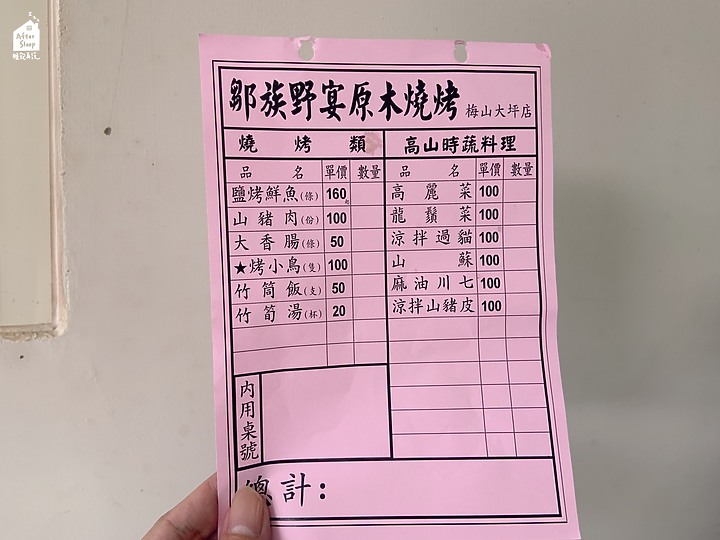 After
Sleep
睡飽再說
鄒族野宴原木燒烤 梅山大坪店
燒烤類 高山時蔬料理
品名 單價 數量 品名 單價 數量
鹽烤鮮魚(條) 160起 高麗菜 100
山豬肉(份) 100 龍鬚菜 100
大香腸(條) 50 涼拌過貓 100
★烤小鳥(隻) 100 山蘇 100
竹筒飯(支) 50 麻油川七 100
竹筍湯(杯) 20 涼拌山豬皮 100
內用桌號
總計: